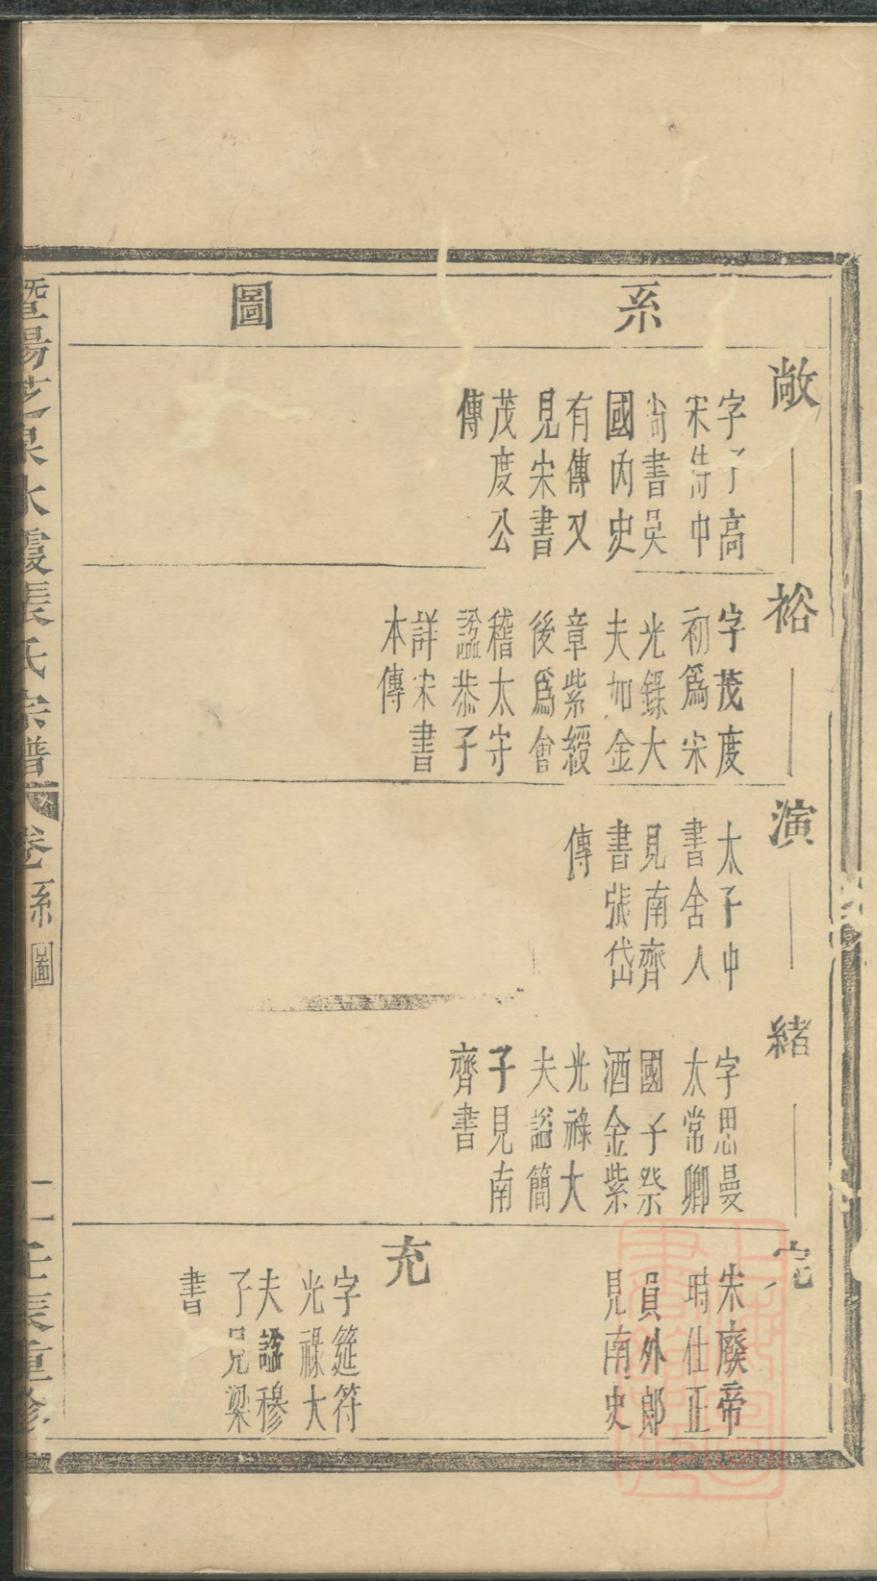 系圖
敞
字子高
宋侍中
尚書吳
國內史
有傳又
見宋書
茂度公
傳
裕
字茂度
初為宋
光錄大
夫加金
章紫綬
後為會
稽太守
諡恭子
詳宋書
本傳
演
太子中
書舍人
見南齊
書張岱
傳
緒
字思曼
太常卿
國子祭
酒金紫
光祿大
夫諡簡
子見南
齊書
完
宋廢帝
時仕正
員外郎
見南史
充
字筵符
光祿大
夫諡穆
子見梁
書
暨陽芝泉水霞張氏宗譜
卷 系圖
一 壬辰重修